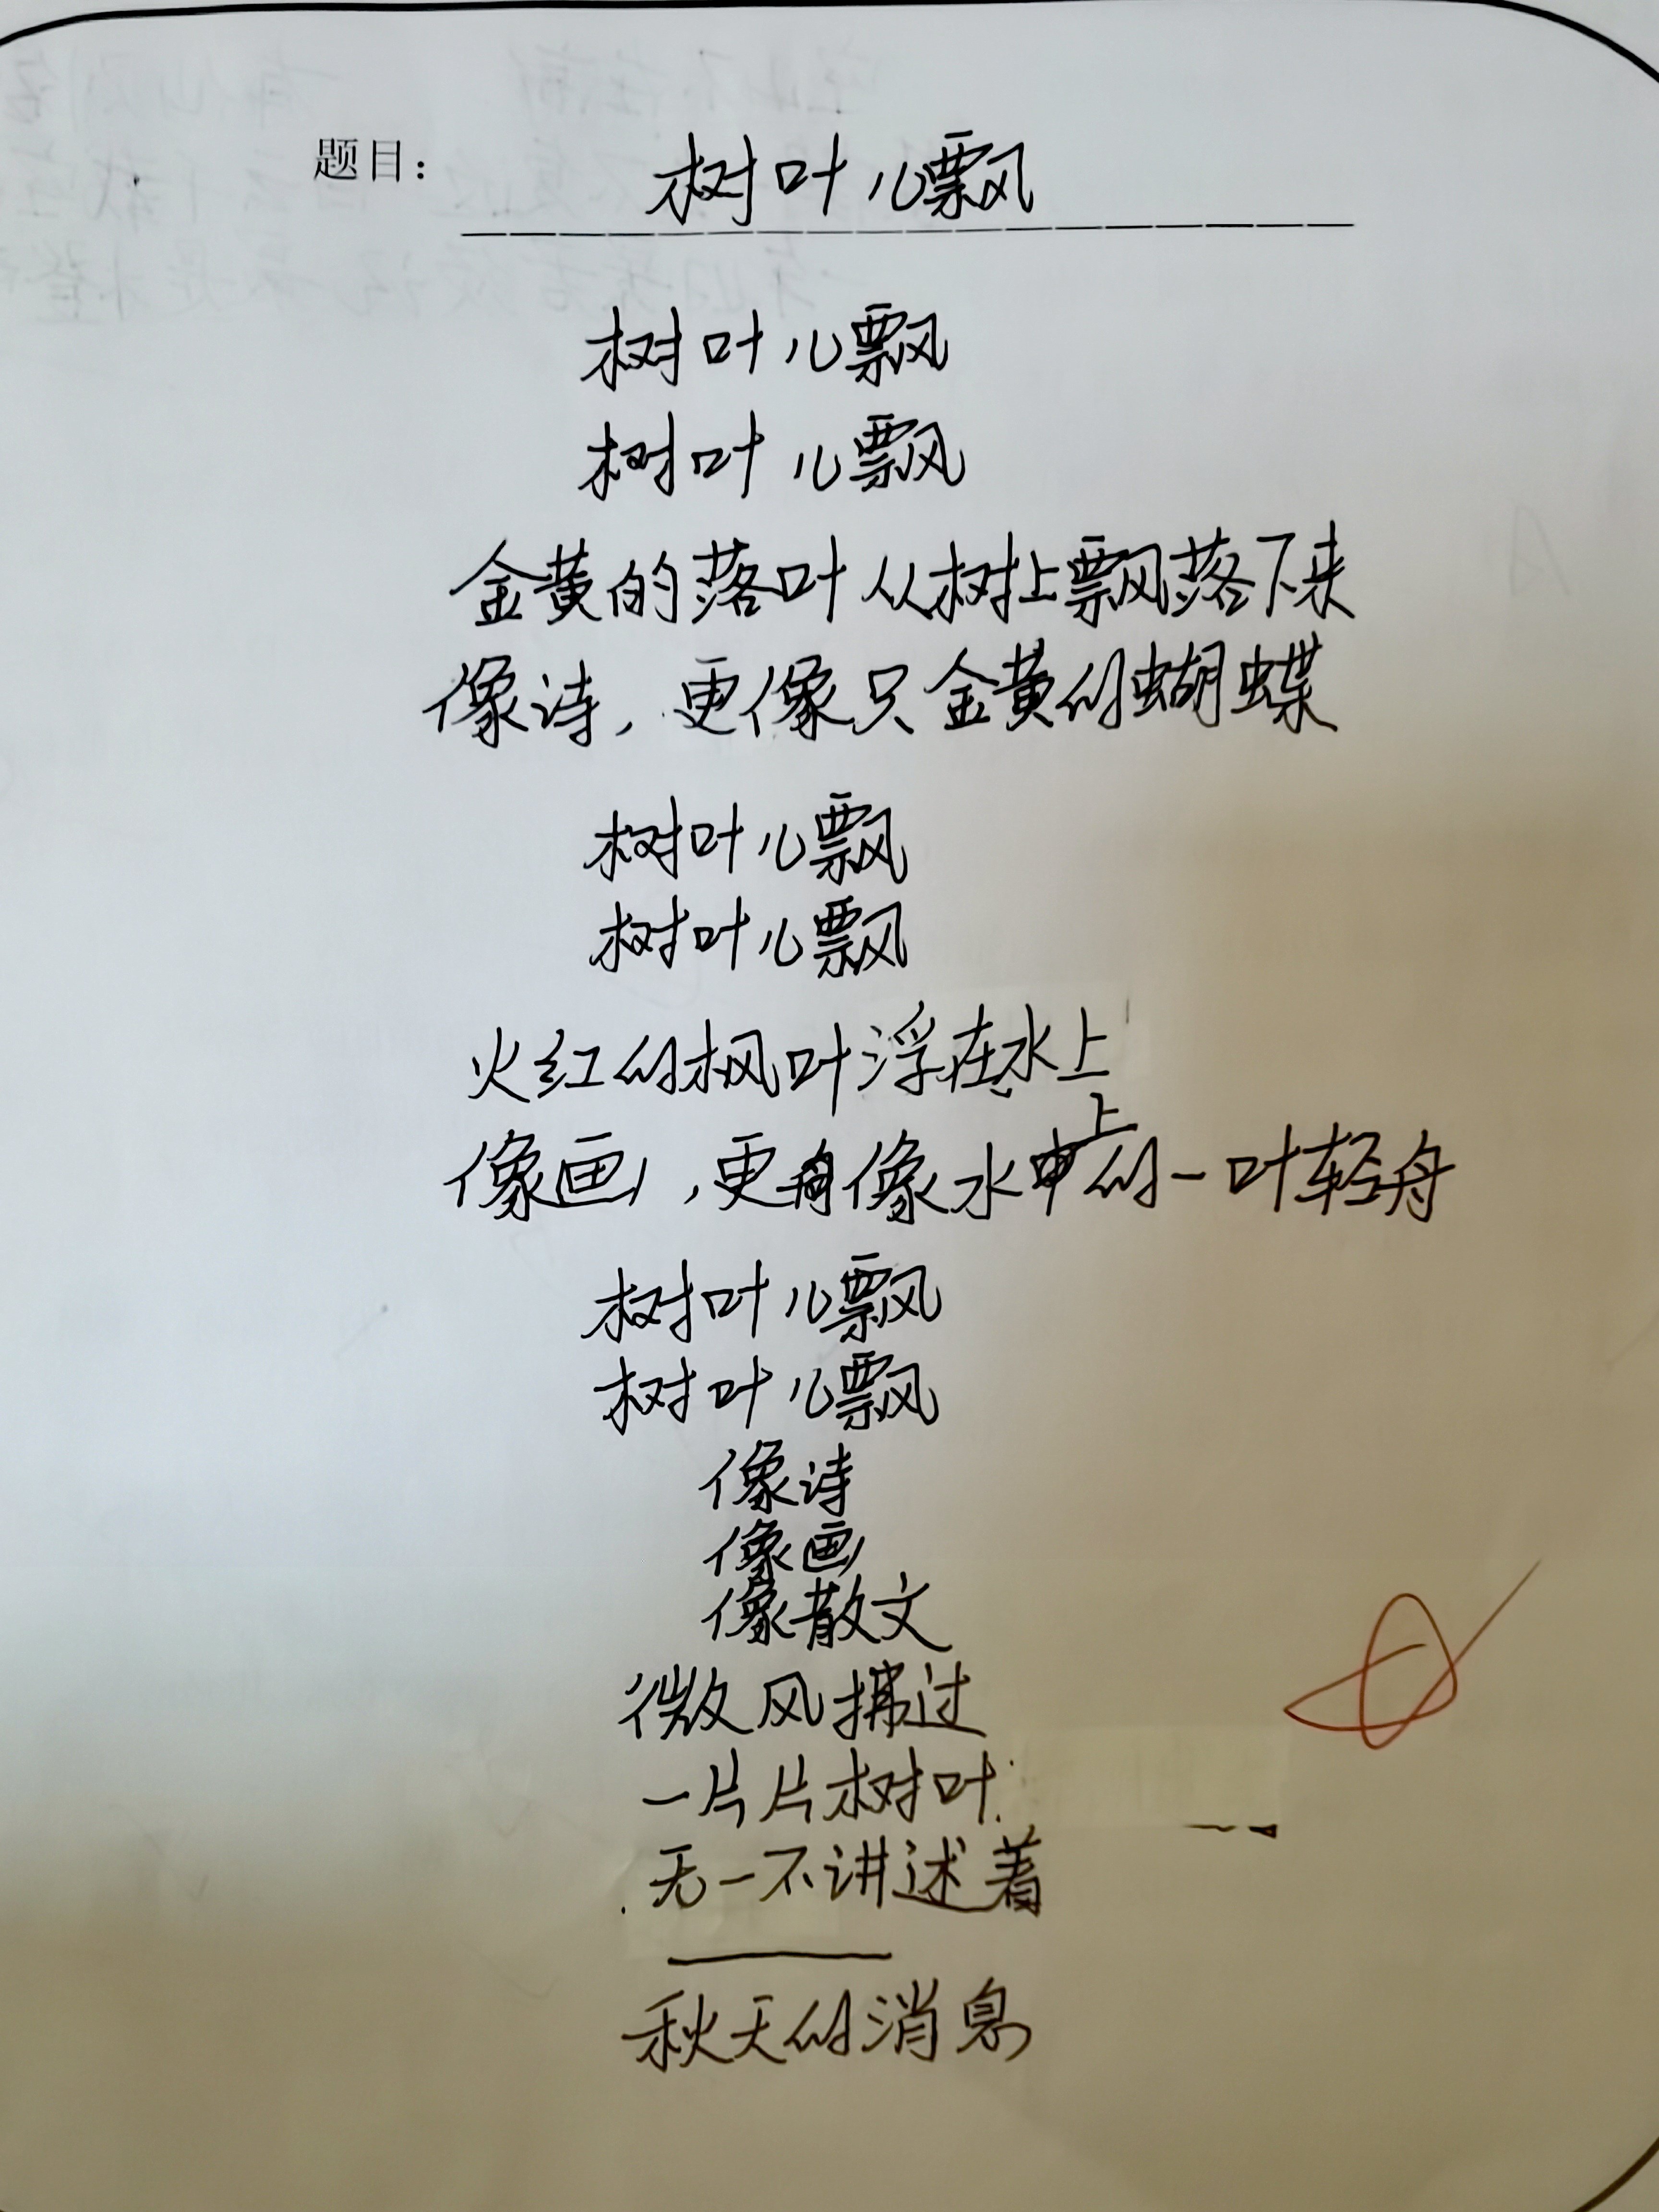 题目：树叶儿飘
树叶儿飘
树叶儿飘
金黄的落叶从树上飘落下来
像诗，更像只金黄的蝴蝶
树叶儿飘
树叶儿飘
火红的枫叶浮在水上
像画，更像水上的一叶轻舟
树叶儿飘
树叶儿飘
像诗
像画
像散文
微风拂过
一片片树叶
无一不讲述着
——
秋天的消息